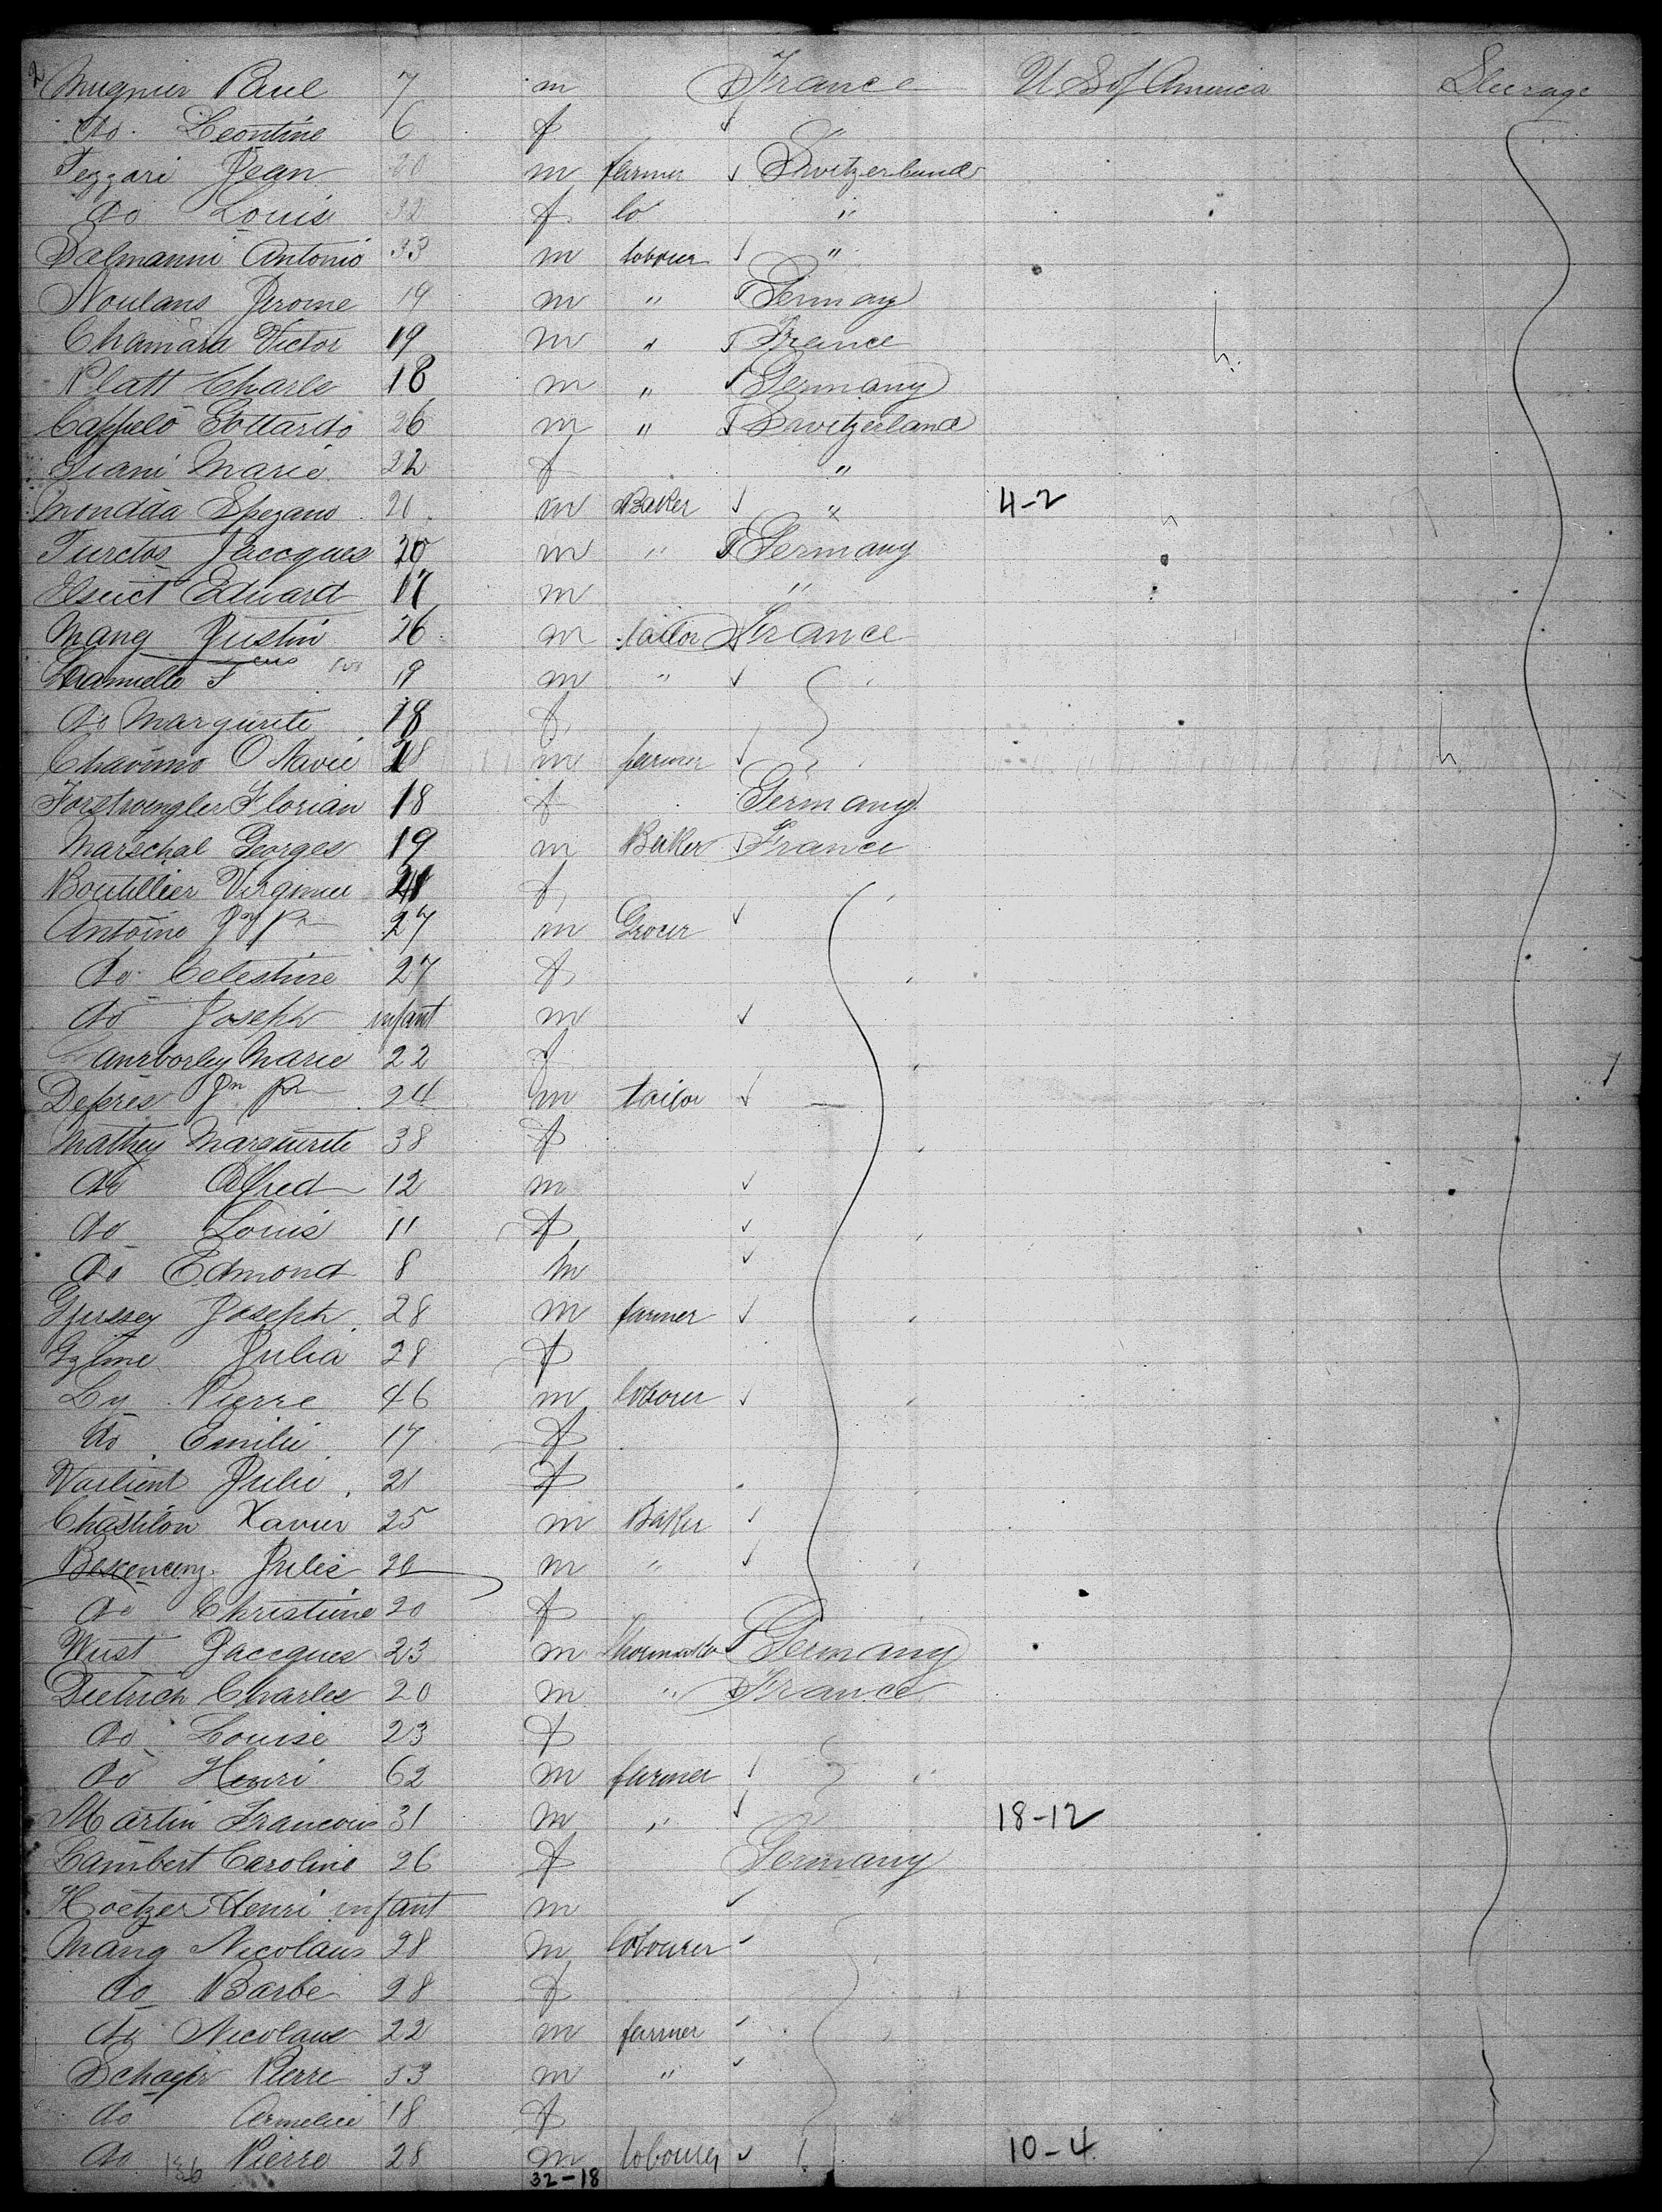 2
Mugnier Paul 7 m France U S of America Steerage
do. Leontine 6 f "
Pezzari Jean 20 m farmer Switzerland
do Louis 32 f do "
Dalmanni Antonio 33 m laborer "
Noulans Jerome 19 m " Germany
Chamara Victor 19 m " France
Platt Charle 18 m " Germany
Cappelo Gottardo 26 m " Switzerland
Giani Marie 22 f "
Mondada Spezano 20 m Baker " 4-2
Turctos Jaccques 20 m " Germany
Edward 17 m "
Mang Justin 26 m tailor France
F 19 m "
do Margurite 18 f
Chavanno O Navie 28 m farmer
Forstwengler Florian 18 f Germany
Marschal Georges 19 m Baker France
Boutillier Virginie 21 f "
Antoine Jn Pr 27 m Grocer
do Celestine 27 f "
do Joseph infant m
Marie 22 f "
Depres Jn Pr 24 m tailor
Mathey Margurite 38 f "
do Alfred 12 m
do Louis 11 f "
do Edmond 8 m
Joseph 28 m farmer "
Julia 28 f
Ly Pierre 46 m laborer "
do Emilie 17 f
Vailient Julie 21 f "
Chastilon Xavier 25 m Baker
Julie 20 m " "
do Christine 20 f "
Wust Jaccques 23 m Shoemaker Germany
Dietrich Charles 20 m " France
do Louise 23 f
do Henri 62 m farmer "
Martin Francois 31 m " 18-12
Lambert Caroline 26 f Germany
Hoetzer Henri infant m
Mang Nicolaus 28 m labourer
do Barbe 28 f
do Nicolaus 22 m farmer "
Pierre 53 m "
do Armelie 18 f
do 136 Pierre 28 m labourer 10-4
32-18